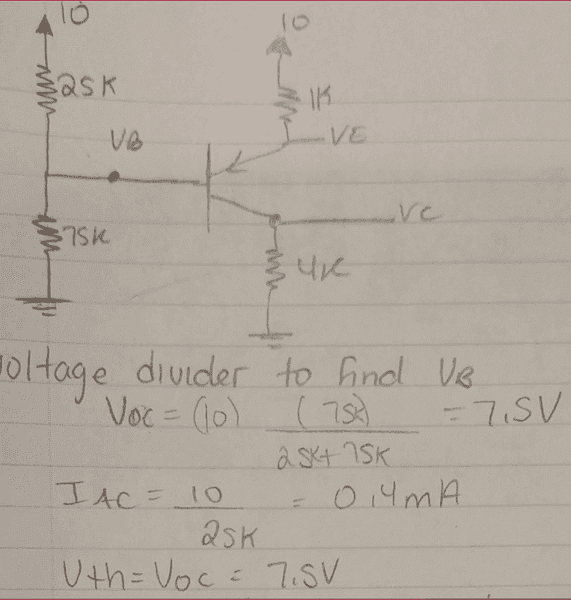 10
10
25K
1K
VB
VE
VC
75K
4K
voltage divider to find VB
Voc = (10) (75k) / 25K+75K = 7.5V
IAC = 10 / 25K = 0.4mA
Vth = Voc = 7.5V